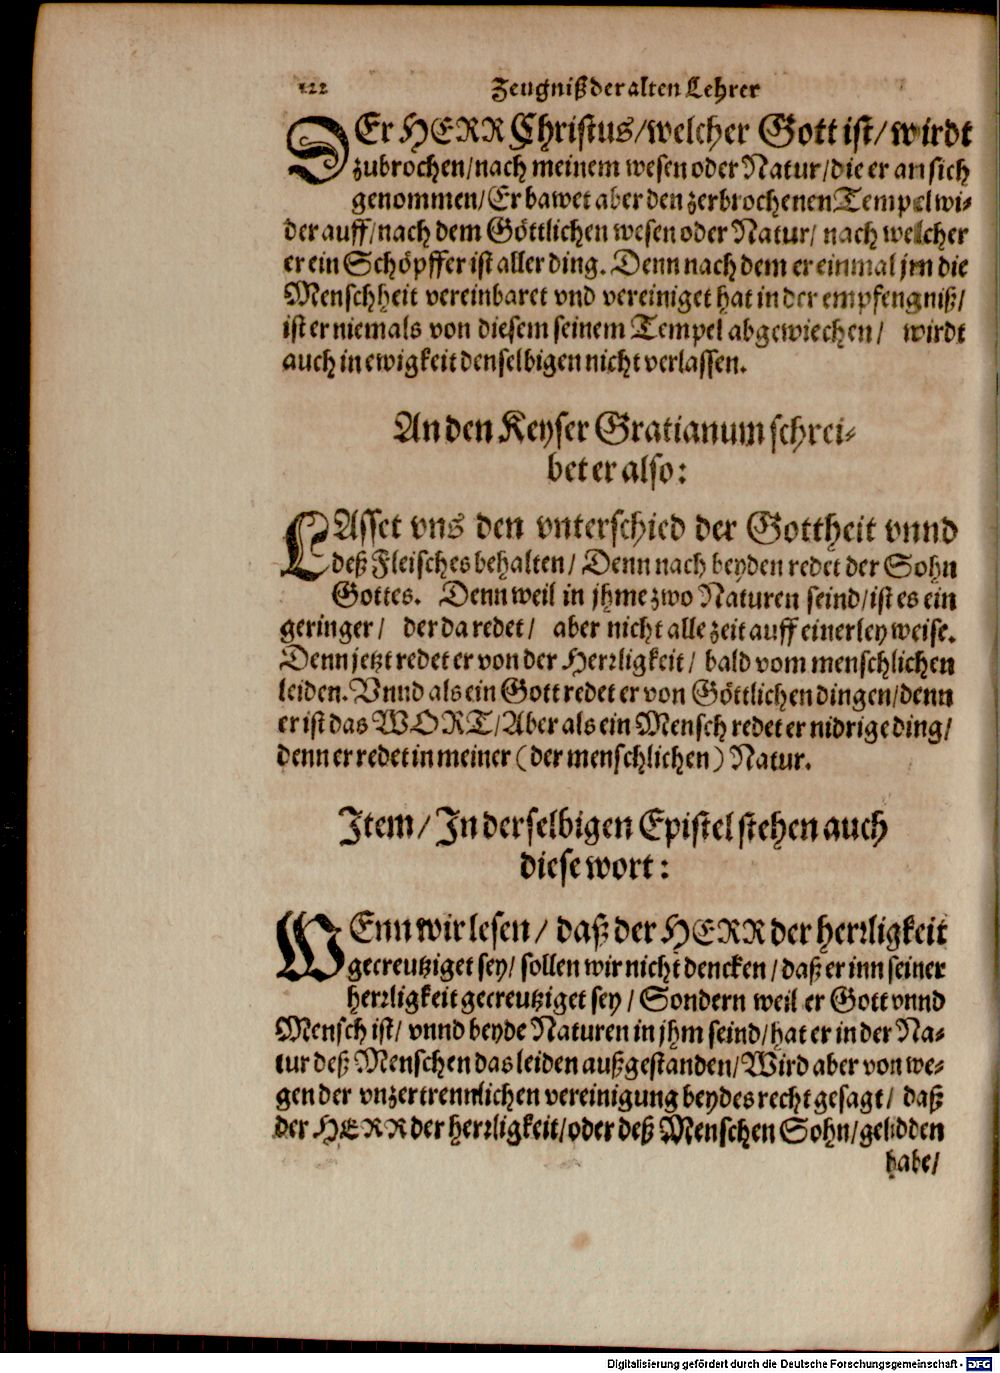 122 Zeugniß der alten Lehrer
DEr HERR Christus/welcher Gott ist/wirdt
zubrochen/nach meinem wesen oder Natur/die er an sich
genommen/Er bawet aber den zerbrochenen Tempel wi-
der auff/nach dem Göttlichen wesen oder Natur/ nach welcher
er ein Schöpffer ist aller ding. Denn nach dem er einmal jm die
Menschheit vereinbaret vnd vereiniget hat in der empfengniß/
ist er niemals von diesem seinem Tempel abgewiechen/ wirdt
auch in ewigkeit denselbigen nicht verlassen.
An den Keyser Gratianum schrei-
bet er also:
LAsset vns den vnterschied der Gottheit vnnd
deß Fleisches behalten/ Denn nach beyden redet der Sohn
Gottes. Denn weil in jhme zwo Naturen seind/ist es ein
geringer/ der da redet/ aber nicht alle zeit auff einerley weise.
Denn jetzt redet er von der Herrligkeit/ bald vom menschlichen
leiden. Vnnd als ein Gott redet er von Göttlichen dingen/denn
er ist das WORT/Aber als ein Mensch redet er nidrige ding/
denn er redet in meiner (der menschlichen) Natur.
Item/ In derselbigen Epistel stehen auch
diese wort:
WEnn wir lesen/ daß der HERR der herrligkeit
gecreutziget sey/ sollen wir nicht dencken/daß er inn seiner
herrligkeit gecreutziget sey/ Sondern weil er Gott vnnd
Mensch ist/ vnnd beyde Naturen in jhm seind/hat er in der Na-
tur deß Menschen das leiden außgestanden/Wird aber von we-
gen der vnzertrennlichen vereinigung beydes recht gesagt/ daß
der HERR der herrligkeit/oder deß Menschen Sohn/gelidden
habe/
Digitalisierung gefördert durch die Deutsche Forschungsgemeinschaft - DFG